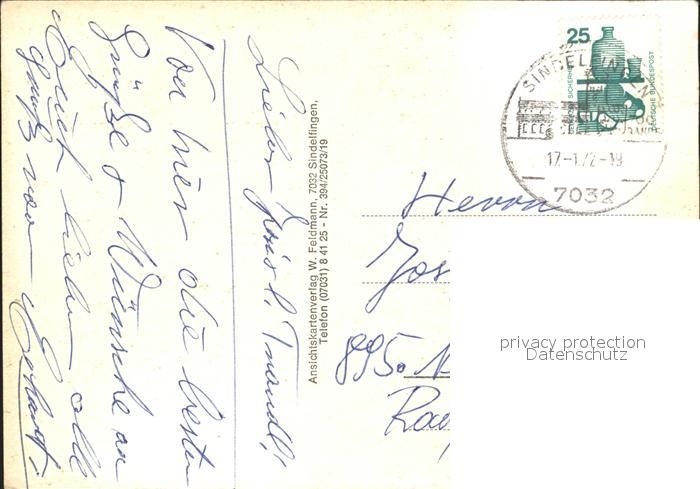 Lieber
Von hier die besten
Grüße & Wünsche an
Euch lieben alle
Ansichtskartenverlag W. Feldmann, 7032 Sindelfingen,
Telefon (07031) 8 41 25 - Nr. 394/25073/19
25
SICHERHEIT
DEUTSCHE BUNDESPOST
SINDELFINGEN
17-1.72-19
7032
Herrn
Jos
8950
privacy protection
Datenschutz